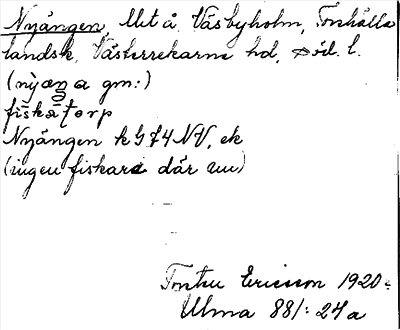 Nyängen, Mst å Väsbyholm, Torshälla
landsk, Västerrekarne hd, Söd. l.
(nỳæŋa gm:)
fiskåtorp
Nyängen kG J4 NV, ek
(ingen fiskare där nu)
Torsten Ericsson 1920
Ulma 88/: 24a